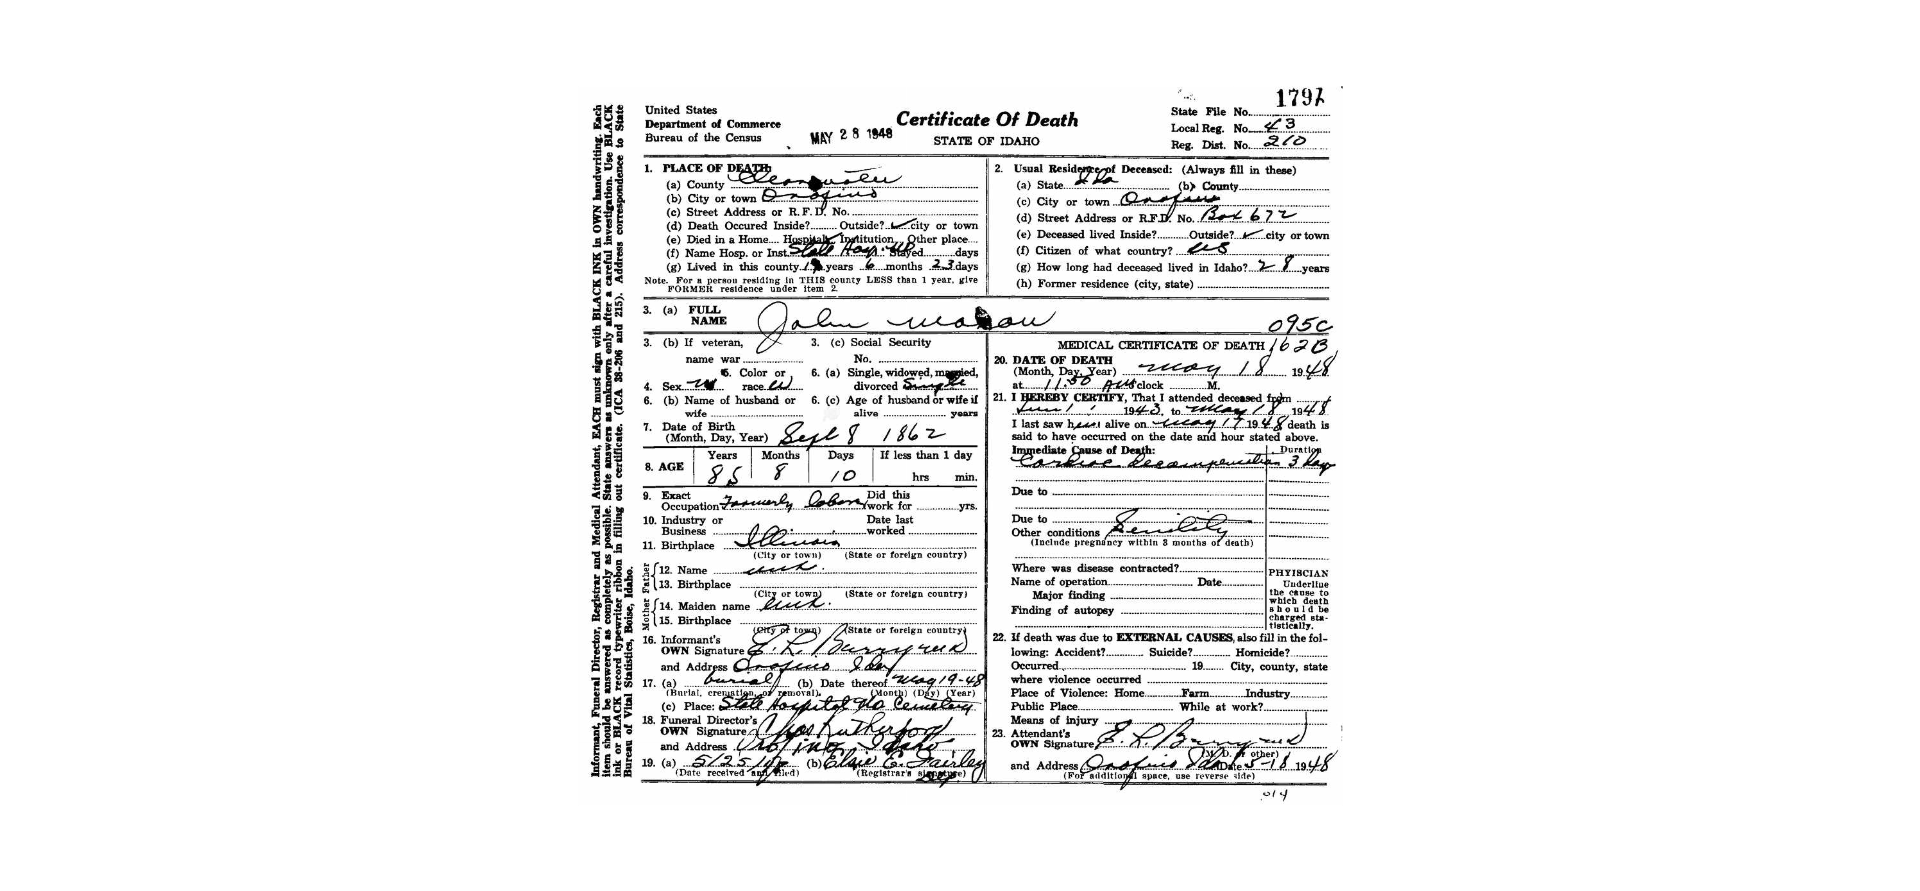 1797
United States
Department of Commerce
Bureau of the Census
MAY 28 1948
Certificate Of Death
STATE OF IDAHO
State File No.
Local Reg. No. 43
Reg. Dist. No. 210
Informant, Funeral Director, Registrar and Medical Attendant, EACH must sign with BLACK INK in OWN handwriting. Each
item should be answered as completely as possible. State answers as unknown only after a careful investigation. Use BLACK
ink or BLACK record typewriter ribbon in filling out certificate. (ICA 38-206 and 215). Address correspondence to State
Bureau of Vital Statistics, Boise, Idaho.
1. PLACE OF DEATH:
(a) County Clearwater
(b) City or town Orofino
(c) Street Address or R.F.D. No.
(d) Death Occured Inside? Outside? ✓ city or town
(e) Died in a Home Hospital Institution Other place
(f) Name Hosp. or Inst. State Hosp. No Stayed days
(g) Lived in this county years 6 months 23 days
Note. For a person residing in THIS county LESS than 1 year, give
FORMER residence under item 2.
2. Usual Residence of Deceased: (Always fill in these)
(a) State Ida (b) County
(c) City or town Orofino
(d) Street Address or R.F.D. No. Box 672
(e) Deceased lived Inside? Outside? ✓ city or town
(f) Citizen of what country? US
(g) How long had deceased lived in Idaho? 28 years
(h) Former residence (city, state)
3. (a) FULL NAME John
095c
3. (b) If veteran, name war
3. (c) Social Security No.
4. Sex M 5. Color or race W
6. (a) Single, widowed, married, divorced Single
6. (b) Name of husband or wife
6. (c) Age of husband or wife if alive years
7. Date of Birth (Month, Day, Year) Sept 8 1862
8. AGE Years Months Days If less than 1 day
85 8 10 hrs min.
9. Exact Occupation Formerly labor Did this work for yrs.
10. Industry or Business Date last worked
11. Birthplace Illinois
(City or town) (State or foreign country)
Father
12. Name unk.
13. Birthplace
(City or town) (State or foreign country)
Mother
14. Maiden name unk.
15. Birthplace
(City or town) (State or foreign country)
16. Informant's OWN Signature E. R.
and Address Orofino Ida
17. (a) burial (b) Date thereof May 19-48
(Burial, cremation, or removal). (Month) (Day) (Year)
(c) Place: State Hospital No Cemetery
18. Funeral Director's OWN Signature Chas Rutherford
and Address Orofino, Idaho
19. (a) 5/25/48 (b) Elsie E. Fairley
(Date received and filed) (Registrar's signature)
Dep.
MEDICAL CERTIFICATE OF DEATH 162B
20. DATE OF DEATH
(Month, Day, Year) May 18 1948
at 11:50 AM o'clock M.
21. I HEREBY CERTIFY, That I attended deceased from
1943, to May 18, 1948
I last saw him alive on May 17 1948 death is
said to have occurred on the date and hour stated above.
Immediate Cause of Death: Duration
Cardiac decompensation 3 days
Due to
Due to
Other conditions Senility
(Include pregnancy within 3 months of death)
Where was disease contracted?
Name of operation Date
Major finding
Finding of autopsy
PHYISCIAN
Underline
the cause to
which death
should be
charged sta-
tistically.
22. If death was due to EXTERNAL CAUSES, also fill in the fol-
lowing: Accident? Suicide? Homicide?
Occurred 19 City, county, state
where violence occurred
Place of Violence: Home Farm Industry
Public Place While at work?
Means of injury
23. Attendant's OWN Signature E. R.
(M. D. or other)
and Address Orofino Ida Date 5-18 1948
(For additional space, use reverse side)
014